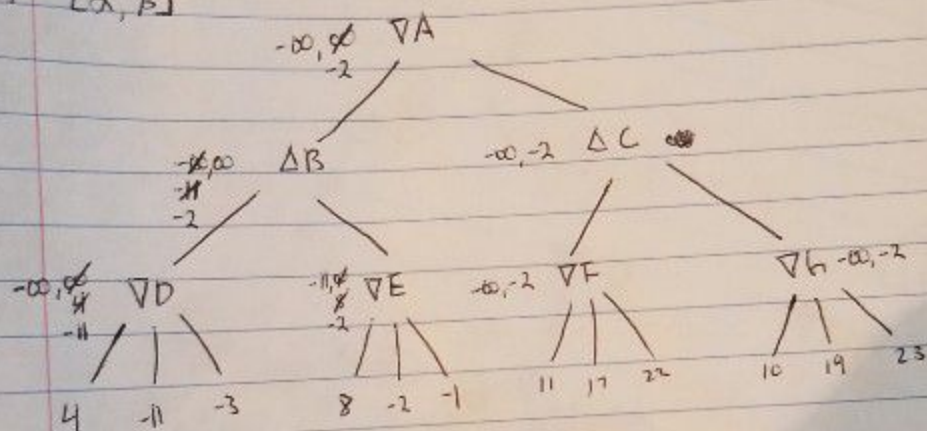 [α, β]
-∞, ∞ ∇A
-2
-∞, ∞ ΔB
-11
-2
-∞, -2 ΔC
-∞, ∞ ∇D
4
-11
-11, ∞ ∇E
8
-2
-∞, -2 ∇F
∇G -∞, -2
4 -11 -3 8 -2 -1 11 17 22 10 19 23